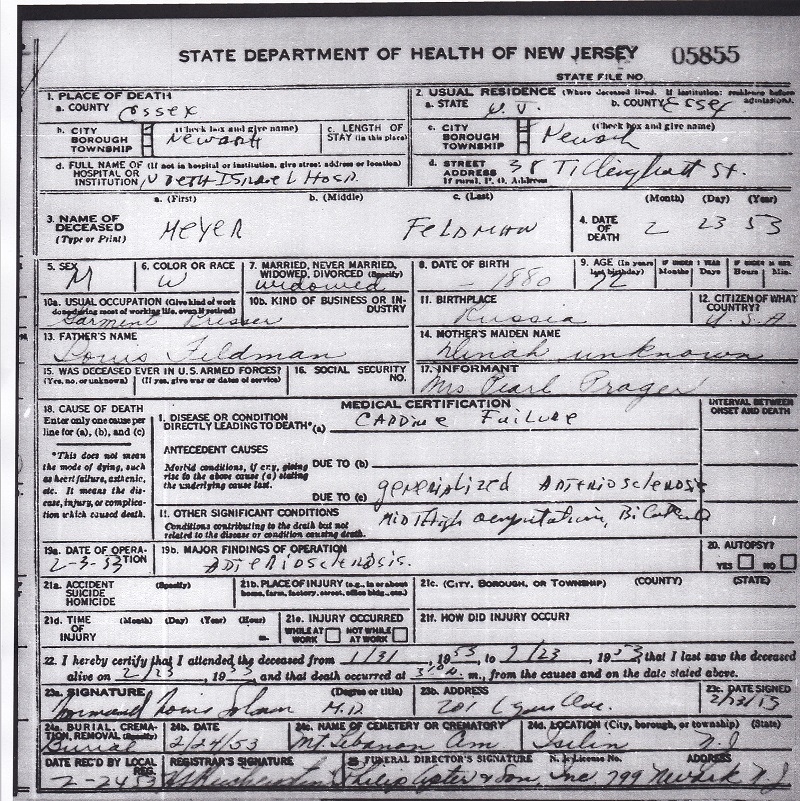 STATE DEPARTMENT OF HEALTH OF NEW JERSEY 05855
STATE FILE NO.
1. PLACE OF DEATH
a. COUNTY Essex
2. USUAL RESIDENCE (Where deceased lived. If institution: residence before admission).
a. STATE N.J. b. COUNTY Essex
b. CITY BOROUGH TOWNSHIP (Check box and give name) Newark
c. LENGTH OF STAY (in this place)
c. CITY BOROUGH TOWNSHIP (Check box and give name) Newark
d. FULL NAME OF HOSPITAL OR INSTITUTION (If not in hospital or institution, give street address or location) N Beth Israel Hosp.
d. STREET ADDRESS If rural, P. O. Address 38 St.
3. NAME OF DECEASED (Type or Print)
a. (First) b. (Middle) c. (Last)
MEYER FELDMAN
4. DATE OF DEATH (Month) (Day) (Year)
2 23 53
5. SEX M
6. COLOR OR RACE W
7. MARRIED, NEVER MARRIED, WIDOWED, DIVORCED (Specify) widowed
8. DATE OF BIRTH - 1880
9. AGE (In years last birthday) 72 IF UNDER 1 YEAR Months Days IF UNDER 24 HRS. Hours Min.
10a. USUAL OCCUPATION (Give kind of work done during most of working life, even if retired) Garment Presser
10b. KIND OF BUSINESS OR INDUSTRY
11. BIRTHPLACE Russia
12. CITIZEN OF WHAT COUNTRY? U.S.A
13. FATHER'S NAME Louis Feldman
14. MOTHER'S MAIDEN NAME Dinah unknown
15. WAS DECEASED EVER IN U.S. ARMED FORCES? (Yes, no, or unknown) (If yes, give war or dates of service)
16. SOCIAL SECURITY NO.
17. INFORMANT Mrs Pearl Prager
MEDICAL CERTIFICATION
INTERVAL BETWEEN ONSET AND DEATH
18. CAUSE OF DEATH
Enter only one cause per line for (a), (b), and (c)
*This does not mean the mode of dying, such as heart failure, asthenia, etc. It means the disease, injury, or complication which caused death.
I. DISEASE OR CONDITION DIRECTLY LEADING TO DEATH* (a) Cardiac Failure
ANTECEDENT CAUSES
Morbid conditions, if any, giving rise to the above cause (a) stating the underlying cause last.
DUE TO (b)
DUE TO (c) generalized Arteriosclerosis
11. OTHER SIGNIFICANT CONDITIONS
Conditions contributing to the death but not related to the disease or condition causing death.
Midthigh amputation, Bilateral
19a. DATE OF OPERATION 2-3-53
19b. MAJOR FINDINGS OF OPERATION Arteriosclerosis.
20. AUTOPSY? YES NO
21a. ACCIDENT SUICIDE HOMICIDE (Specify)
21b. PLACE OF INJURY (e.g., in or about home, farm, factory, street, office bldg., etc.)
21c. (CITY, BOROUGH, OR TOWNSHIP) (COUNTY) (STATE)
21d. TIME OF INJURY (Month) (Day) (Year) (Hour) m.
21e. INJURY OCCURRED WHILE AT WORK NOT WHILE AT WORK
21f. HOW DID INJURY OCCUR?
22. I hereby certify that I attended the deceased from 1/31, 1953, to 2/23, 1953, that I last saw the deceased
alive on 2/23, 1953 and that death occurred at m., from the causes and on the date stated above.
23a. SIGNATURE (Degree or title) Louis M.D.
23b. ADDRESS 201 Lyons Ave.
23c. DATE SIGNED 2/23/53
24a. BURIAL, CREMATION, REMOVAL (Specify) Burial
24b. DATE 2/24/53
24c. NAME OF CEMETERY OR CREMATORY Mt. Lebanon Cem
24d. LOCATION (City, borough, or township) (State) Iselin N.J
DATE REC'D BY LOCAL REG. 2-24-53
REGISTRAR'S SIGNATURE
25 FUNERAL DIRECTOR'S SIGNATURE N. J. License No. ADDRESS
Philip Apter & Son, Inc 799 Newark N.J